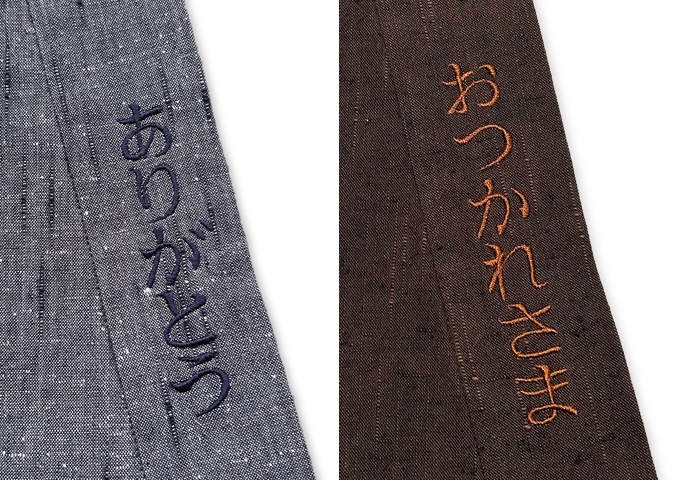 ありがとう
おつかれさま